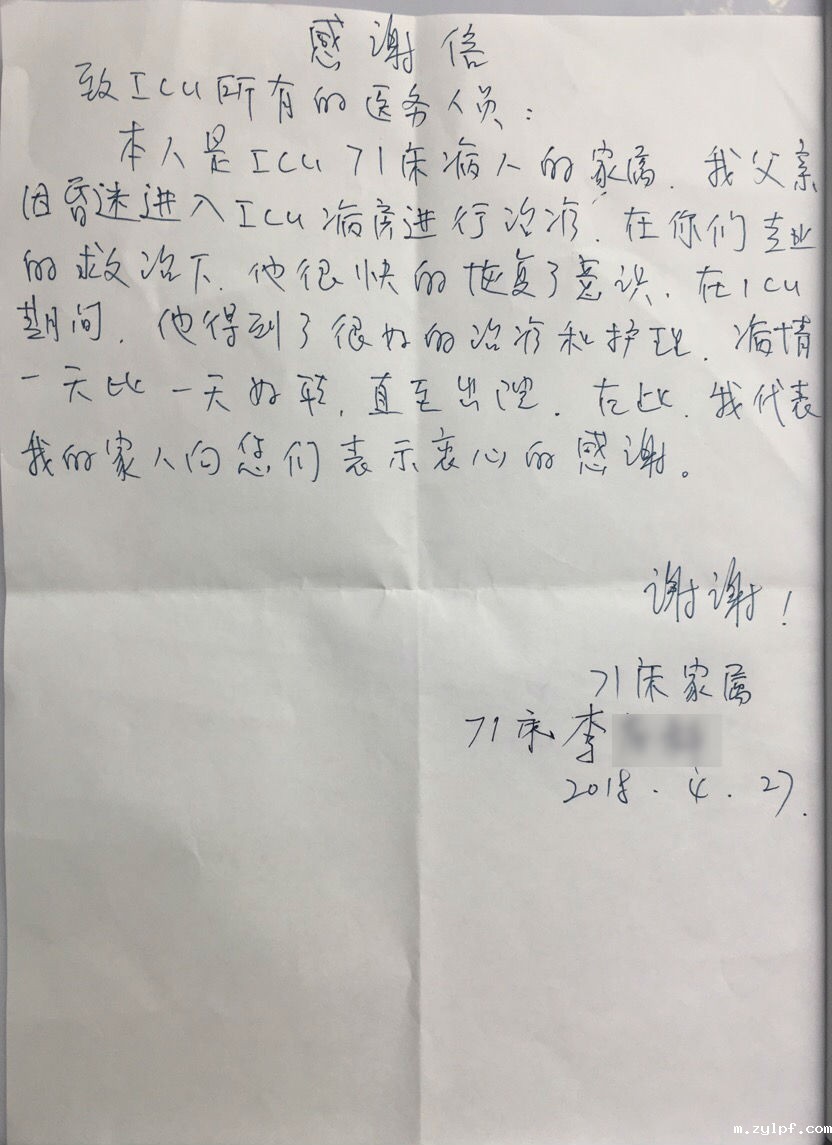 感谢信
致ICU所有的医务人员:
本人是ICU 71床病人的家属.我父亲
因昏迷进入ICU病房进行治疗.在你们专业
的救治下.他很快的恢复了意识.在ICU
期间.他得到了很好的治疗和护理.病情
一天比一天好转.直至出院.在此.我代表
我的家人向您们表示衷心的感谢。
谢谢!
71床家属
71床李
2018.4.27.
m.zylpf.com